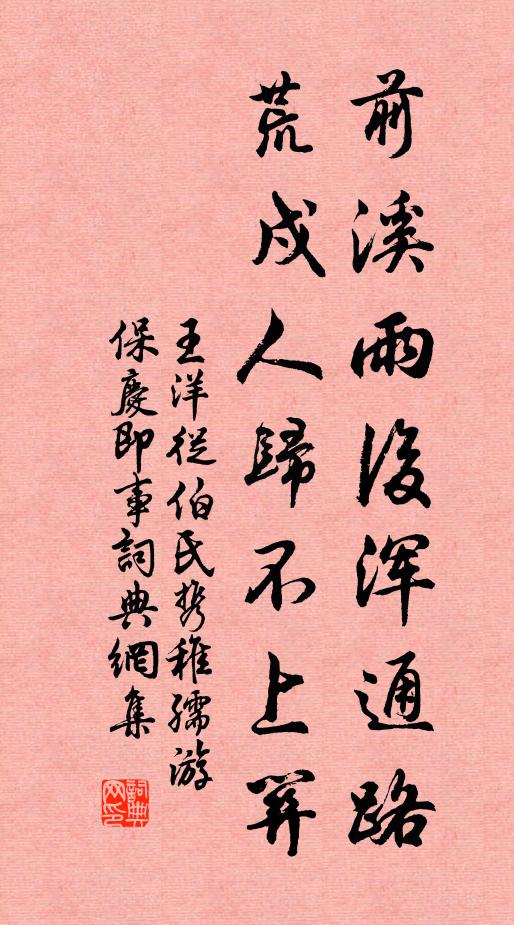 前溪雨後浑通路
荒戍人歸不上關
王洋從伯氏携稚孺游
保慶即事詞典網集
詞典
网印